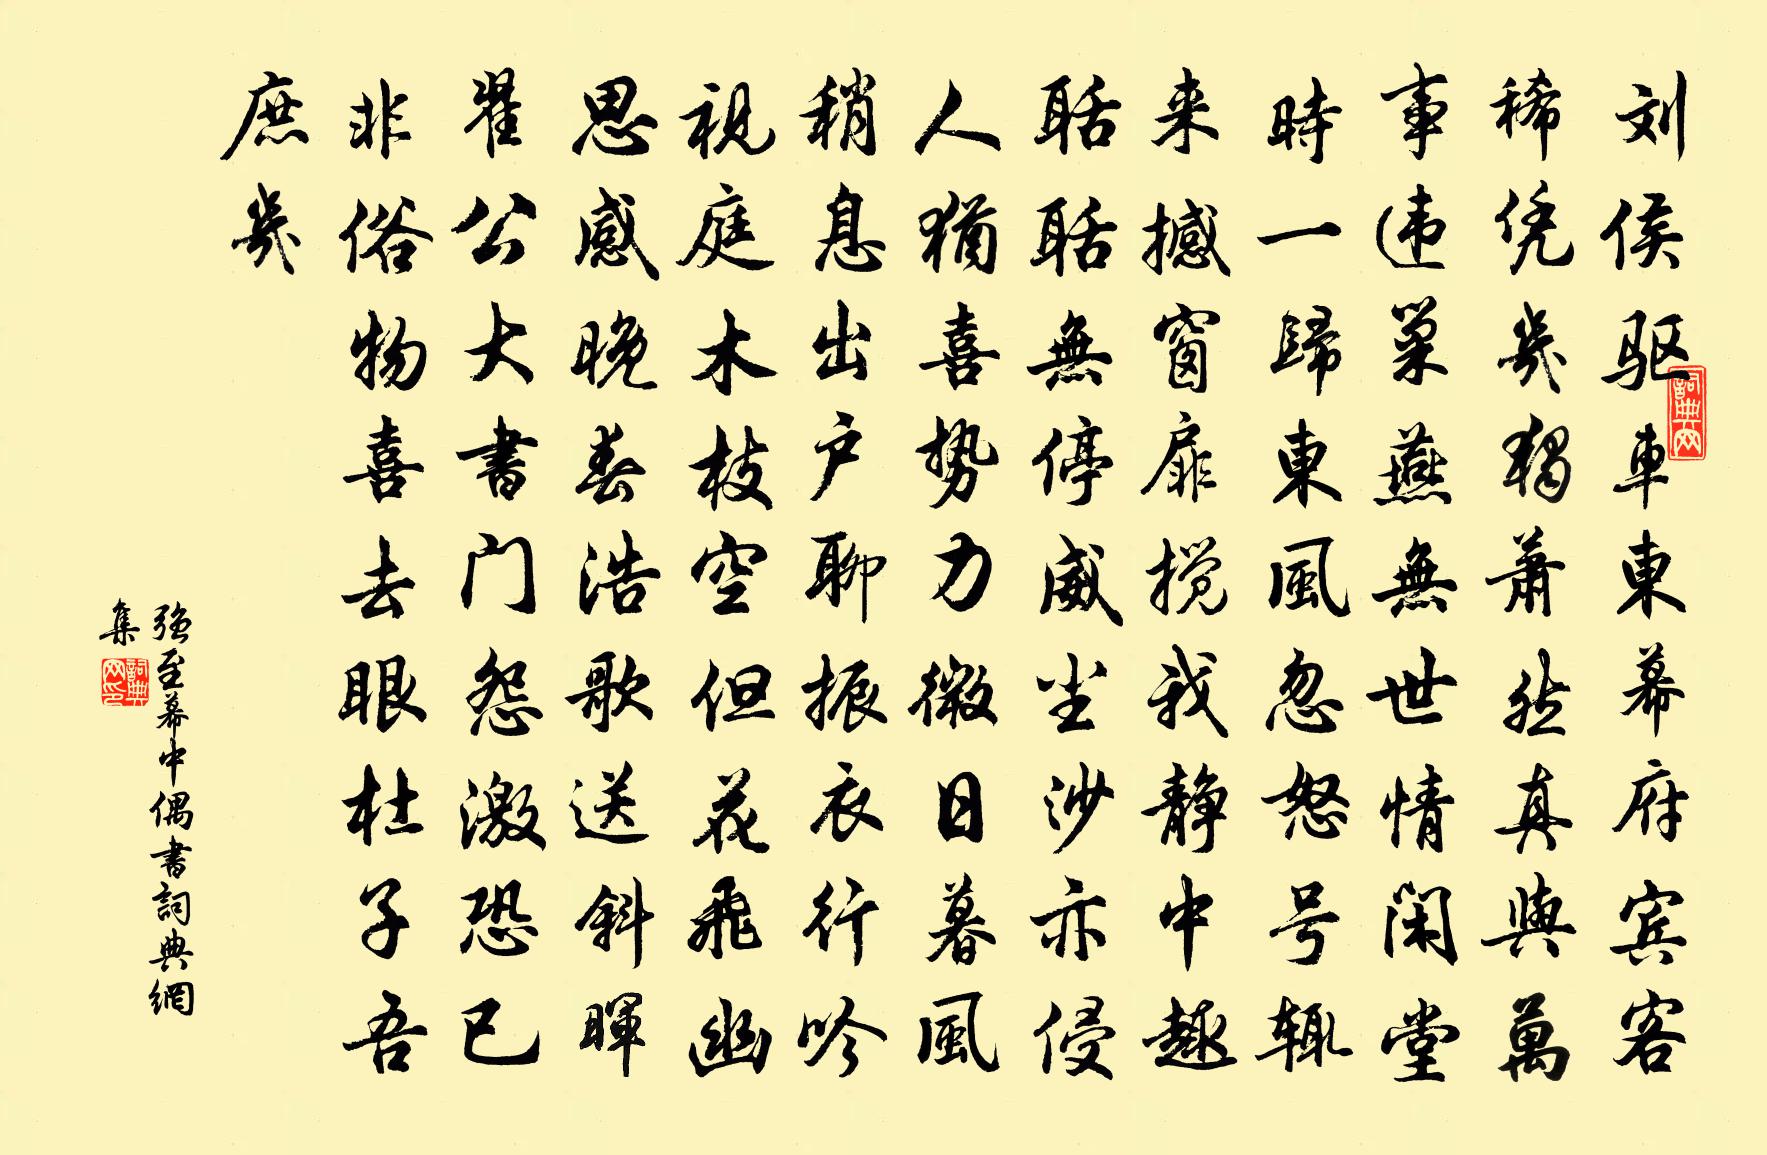 刘侯驱車東幕府宾客
稀凭幾獨蕭然真與萬
事违巢燕無世情闲堂
時一歸東風忽怒号辄
来撼窗扉搅我静中趣
聒聒無停威尘沙亦侵
人猶喜势力微日暮風
稍息出户聊振衣行吟
視庭木枝空但花飛幽
思感晚春浩歌送斜暉
翟公大書门怨激恐已
非俗物喜去眼杜子吾
庶幾
强至幕中偶書詞典網
集
詞典网
詞典网印